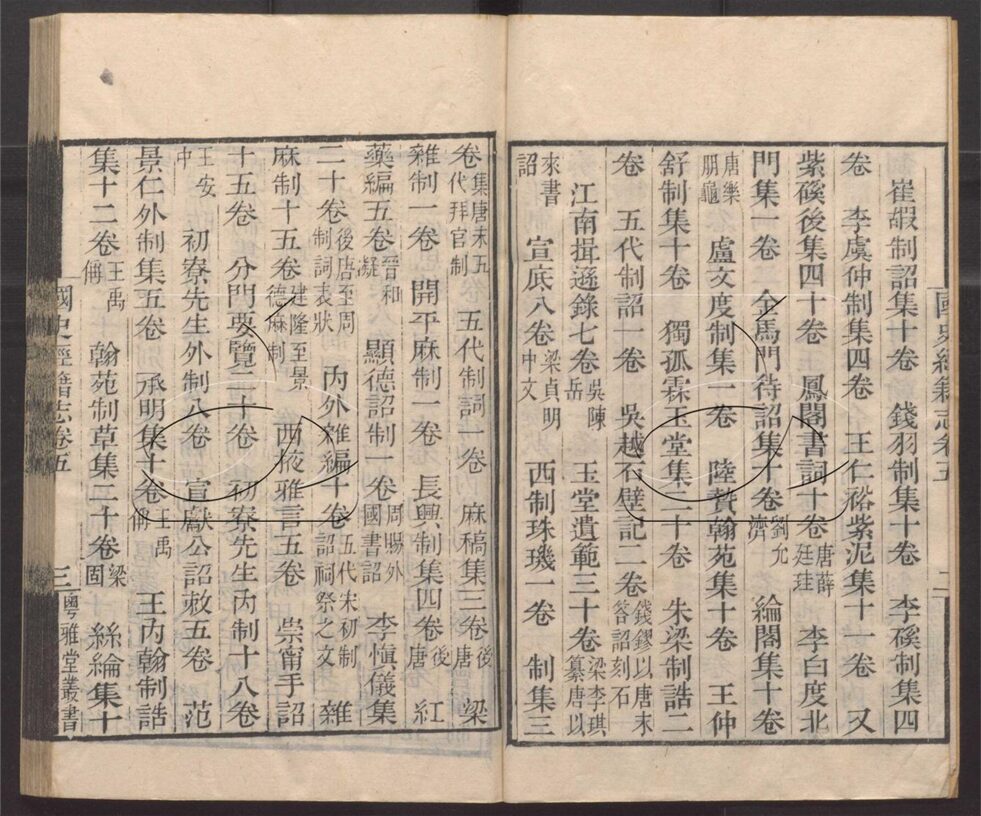 國史經籍志卷五 二
崔嘏制詔集十卷 錢羽制集十卷 李磎制集四
卷 李虞仲制集四卷 王仁裕紫泥集十一卷 又
紫磎後集四十卷 鳳閣書詞十卷唐薛廷珪 李白度北
門集一卷 金馬門待詔集十卷劉允濟 綸閣集十卷
唐樂朋龜 盧文度制集一卷 陸贄翰苑集十卷 王仲
舒制集十卷 獨孤霖玉堂集二十卷 朱梁制誥二
卷 五代制詔一卷 吳越石壁記二卷錢鏐以唐末答詔刻石
江南揖遜錄七卷吳陳岳 玉堂遺範三十卷梁李琪纂唐以
來書詔 宣底八卷梁貞明中文 西制珠璣一卷 制集三
卷集唐末五代拜官制 五代制詞一卷 麻稿集三卷後唐 梁
雜制一卷 開平麻制一卷 長興制集四卷後唐 紅
藥編五卷晉和凝 顯德詔制一卷周賜外國書詔 李慎儀集
二十卷後唐至周制詞表狀 內外雜編十卷五代宋初制詔祠祭之文 雜
麻制十五卷建隆至景德麻制 西掖雅言五卷 崇甯手詔
十五卷 分門要覽二十卷 初寮先生內制十八卷
王安中 初寮先生外制八卷 宣獻公詔敕五卷 范
景仁外制集五卷 承明集十卷王禹偁 王內翰制誥
集十二卷王禹偁 翰苑制草集二十卷梁固 絲綸集十
國史經籍志卷五 三 粵雅堂叢書